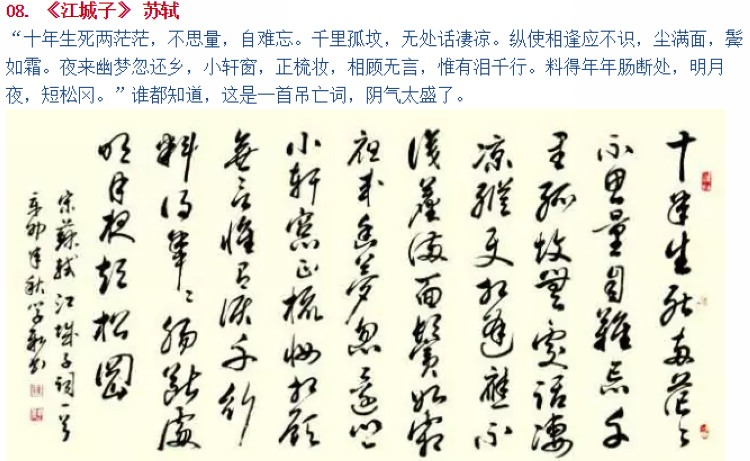 08. 《江城子》 苏轼
“十年生死两茫茫，不思量，自难忘。千里孤坟，无处话凄凉。纵使相逢应不识，尘满面，鬓
如霜。夜来幽梦忽还乡，小轩窗，正梳妆，相顾无言，惟有泪千行。料得年年肠断处，明月
夜，短松冈。”谁都知道，这是一首吊亡词，阴气太盛了。
十年生死两茫〻
不思量自難忘千
里孤墳無處話凄
凉縱使相逢應不
識塵滿面鬢如霜
夜来幽夢忽還鄉
小軒窗正梳妝相顧
無言惟有淚千行
料得年〻腸斷處
明月夜短松岡
宋蘇軾江城子詞一首
辛卯年秋